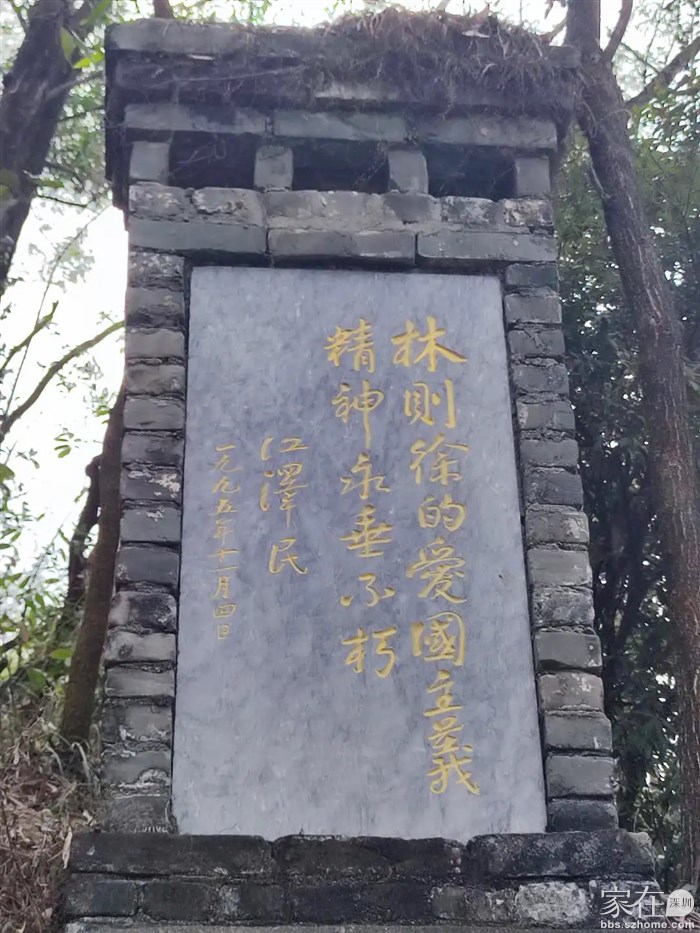 林則徐的愛國主義
精神永垂不朽
江澤民
一九九五年十一月四日
家在深圳
bbs.szhome.com